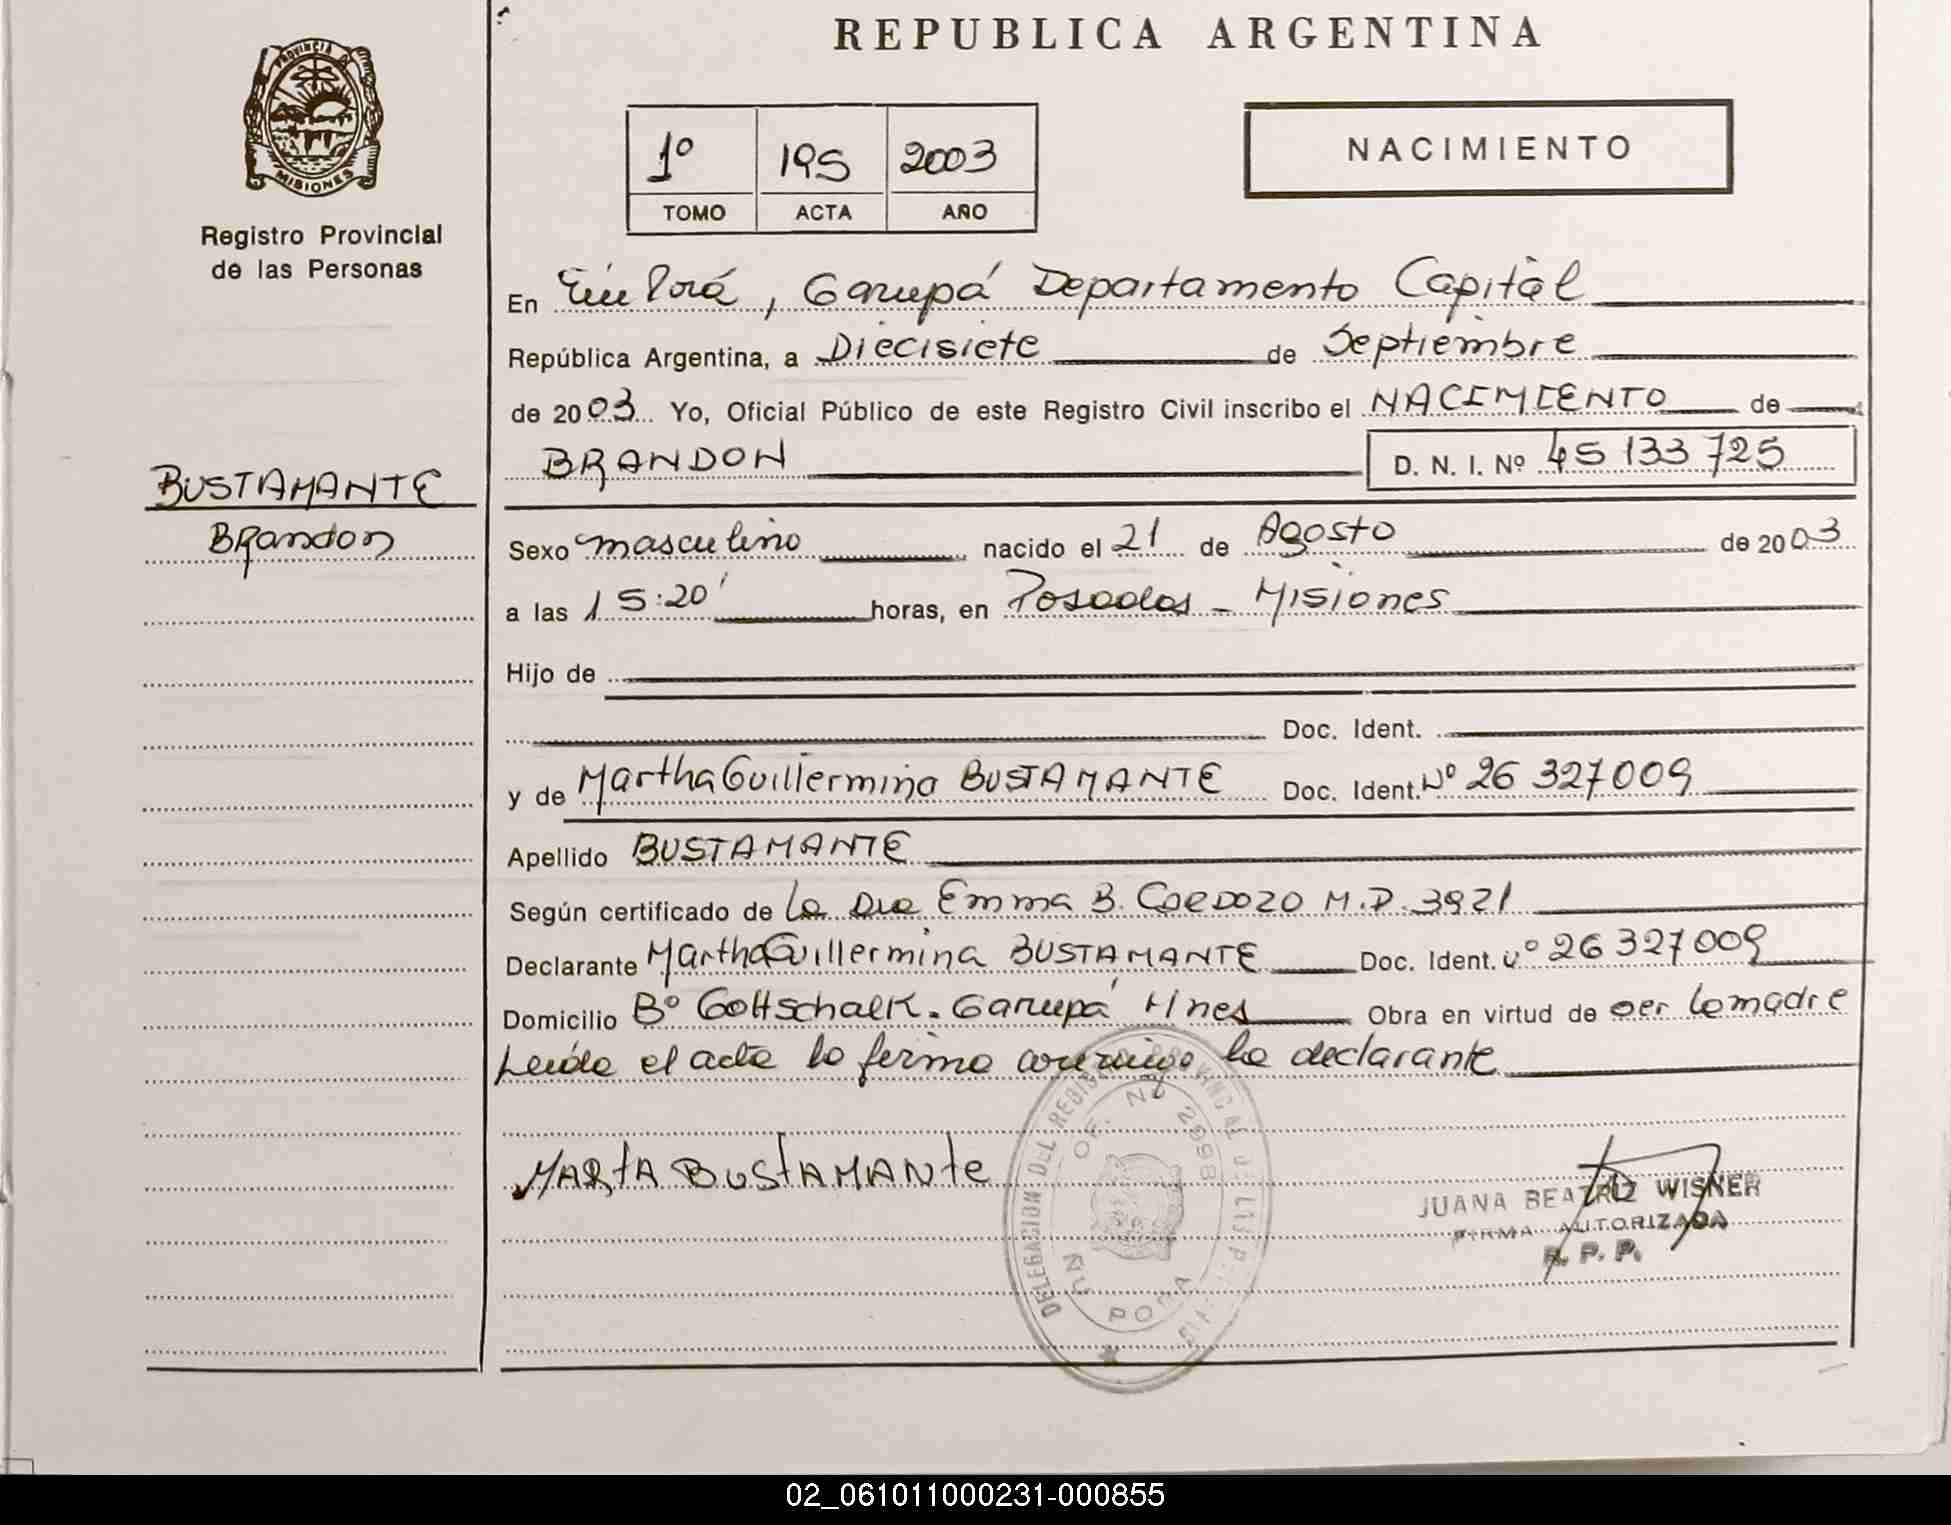 REPUBLICA ARGENTINA
PROVINCIA DE
MISIONES
Registro Provincial
de las Personas
1º 195 2003
TOMO ACTA AÑO
NACIMIENTO
En Ñu Porá, Garupá Departamento Capital
República Argentina, a Diecisiete de Septiembre
de 2003 Yo, Oficial Público de este Registro Civil inscribo el NACIMIENTO de
BRANDON D. N. I. Nº 45 133 725
BUSTAMANTE
Brandon
Sexo masculino nacido el 21 de Agosto de 2003
a las 15:20' horas, en Posadas - Misiones
Hijo de
Doc. Ident.
y de Martha Guillermina BUSTAMANTE Doc. Ident. Nº 26 327009
Apellido BUSTAMANTE
Según certificado de la Dra Emma B. CARDOZO M.P. 3921
Declarante Martha Guillermina BUSTAMANTE Doc. Ident. Nº 26 327009
Domicilio Bº Gottschalk. Garupá Mnes Obra en virtud de ser la madre
Leída el acta la firma conmigo la declarante
MARtA BUStAMANte
DELEGACION DEL REGISTRO PROVINCIAL DE LAS PERSONAS
OF. Nº 2998
ÑU PORA
JUANA BEATRIZ WISNER
FIRMA AUTORIZADA
R. P. P.
02_061011000231-000855